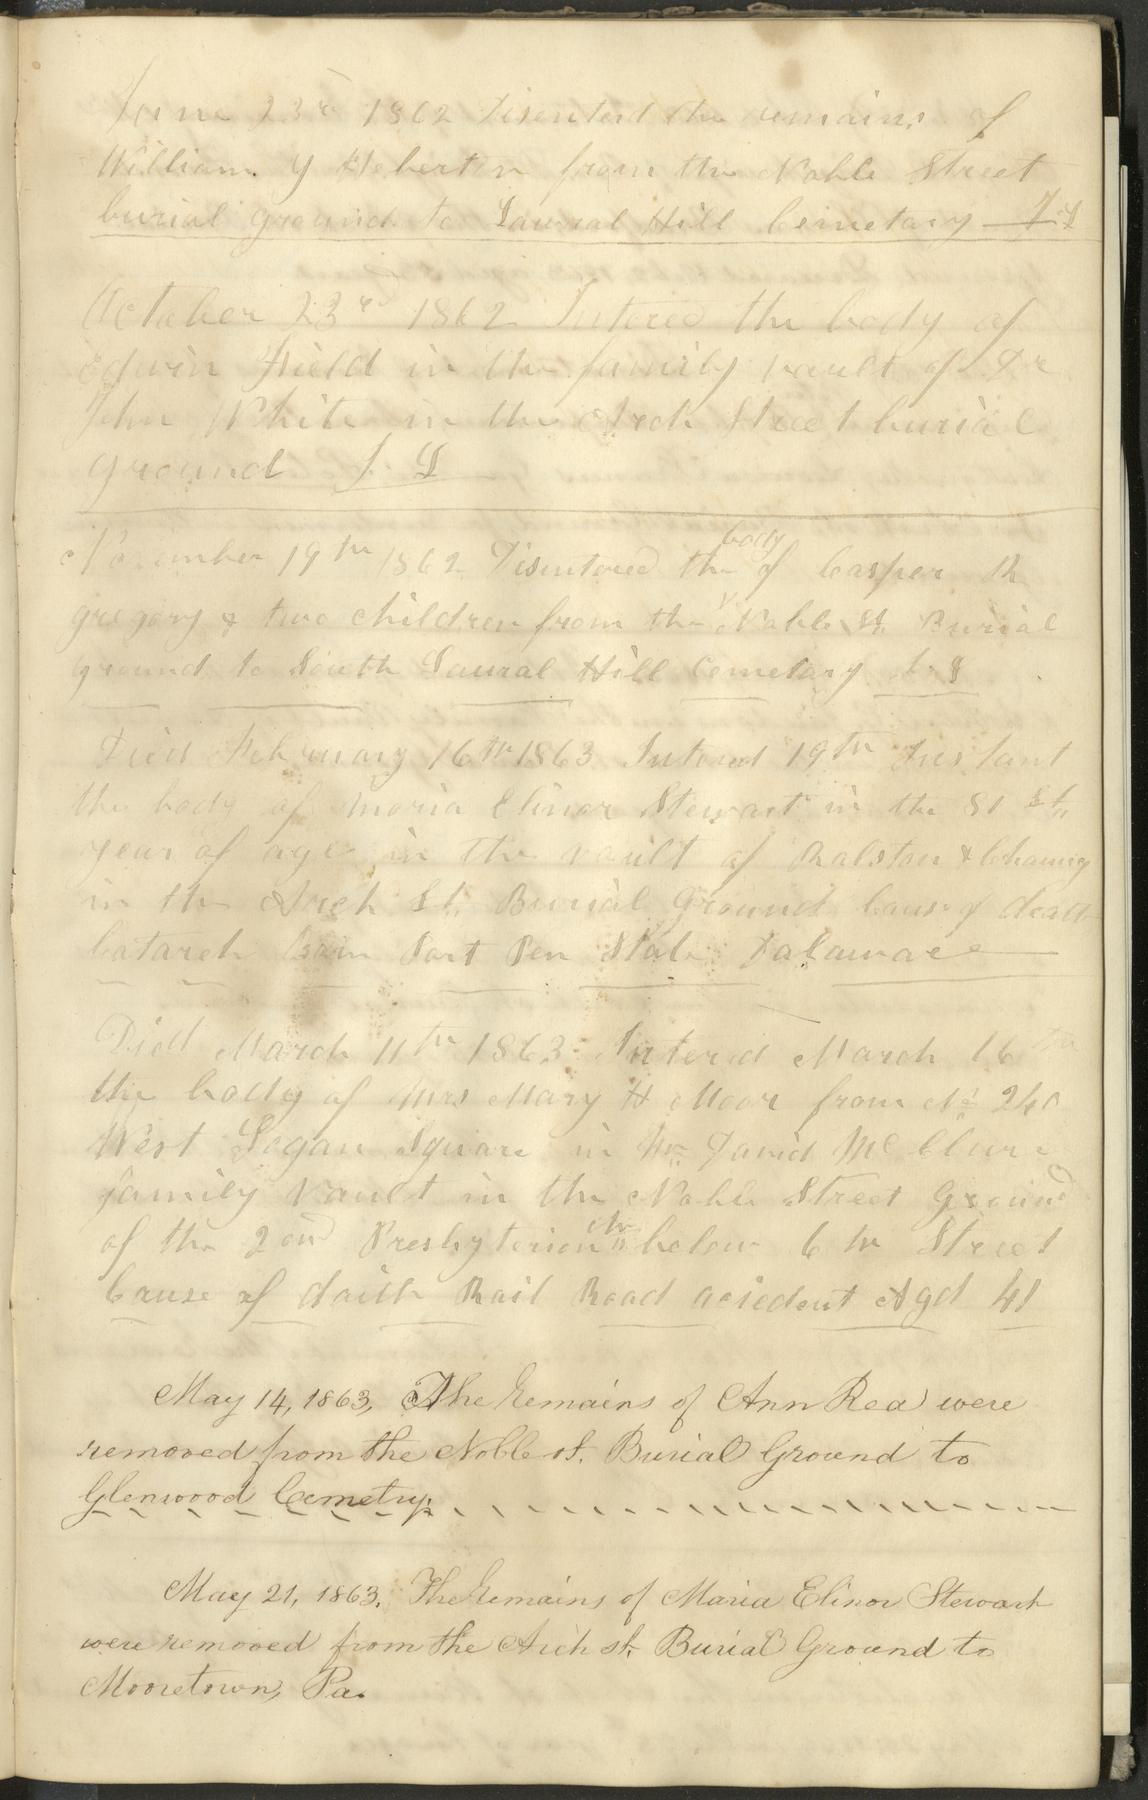 June 23rd 1862 Disentered the remains of
William Y Heberton from the Noble Street
burial ground to Laural Hill Cemetary
October 23rd 1862 Intered the body of
Edwin Field in the family vault of Dr
John White in the Arch Street burial
ground J. L
November 19th 1862 Disintored the body of Casper R
gregory & two children from the Noble St. Burial
ground to South Laural Hill Cemetary
Died February 16th 1863 Intered 19th Instant
the body of Moria Elinor Stewart in the 81 st
year of age in the vault of Ralston &
in the Arch St. Burial Ground Cause of death
Catarch from Port Pen State Dalaware
Died March 11th 1863 Intered March 16 th
the body of Mrs Mary H Moor from No 240
West Logan Square in Mr David Mc Clure
family vault in the Noble Street Ground
of the 2ond Presbyterion Ch below 6 th Street
Cause of daith Rail Road acisdent Agd 41
May 14, 1863, The Remains of Ann Rea were
removed from the Noble st. Burial Ground to
Glenwood Cemetry.
May 21, 1863. The Remains of Maria Elinor Stewart
were removed from the Arch st. Burial Ground to
Mooretown, Pa.